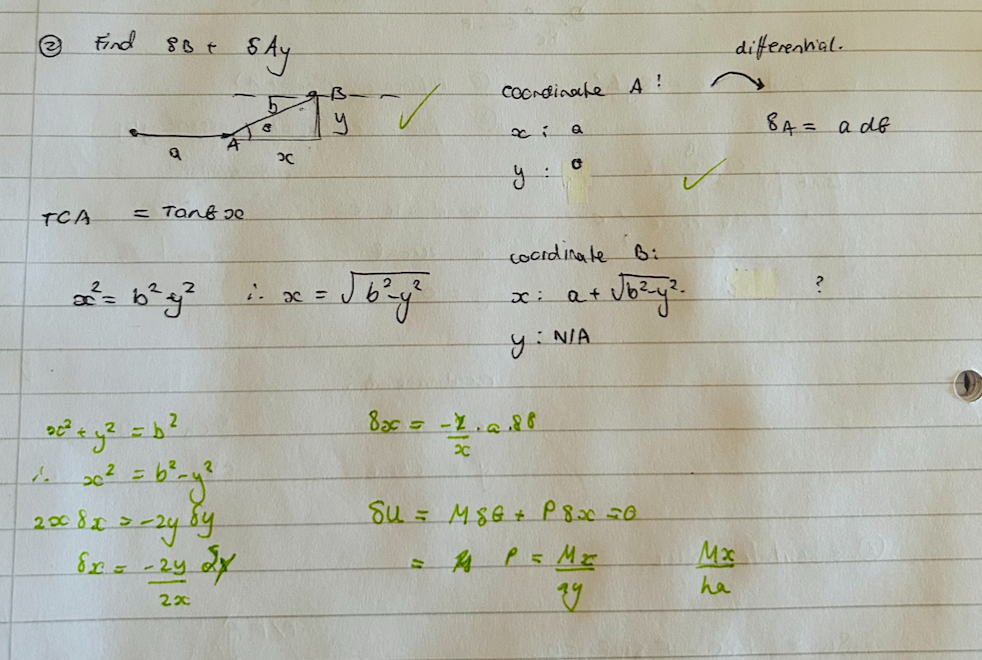 ② Find δB + δAy
differential.
b B
θ y
a A x
coordinate A :
x : a
y : 0
δA = a dθ
TCA = Tanθ x
x² = b² - y² ∴ x = √b²-y²
coordinate B:
x: a + √b²-y². ?
y : N/A
x² + y² = b²
∴ x² = b² - y²
2x δx = -2y δy
δx = -2y/2x δy
δx = -y/x . a . δθ
δU = M δθ + P δx = 0
= P = Mx/ay Mx/ha